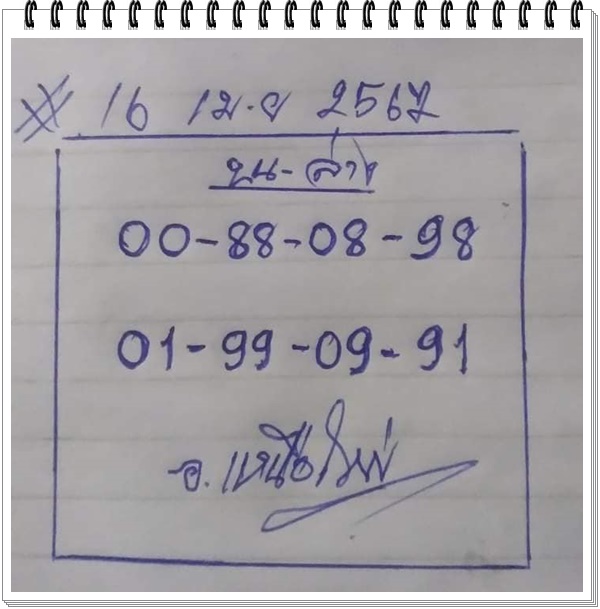 16 เม.ย 2567
บน-ล่าง
00-88-08-98
01-99-09-91
อ.เหนือใหม่